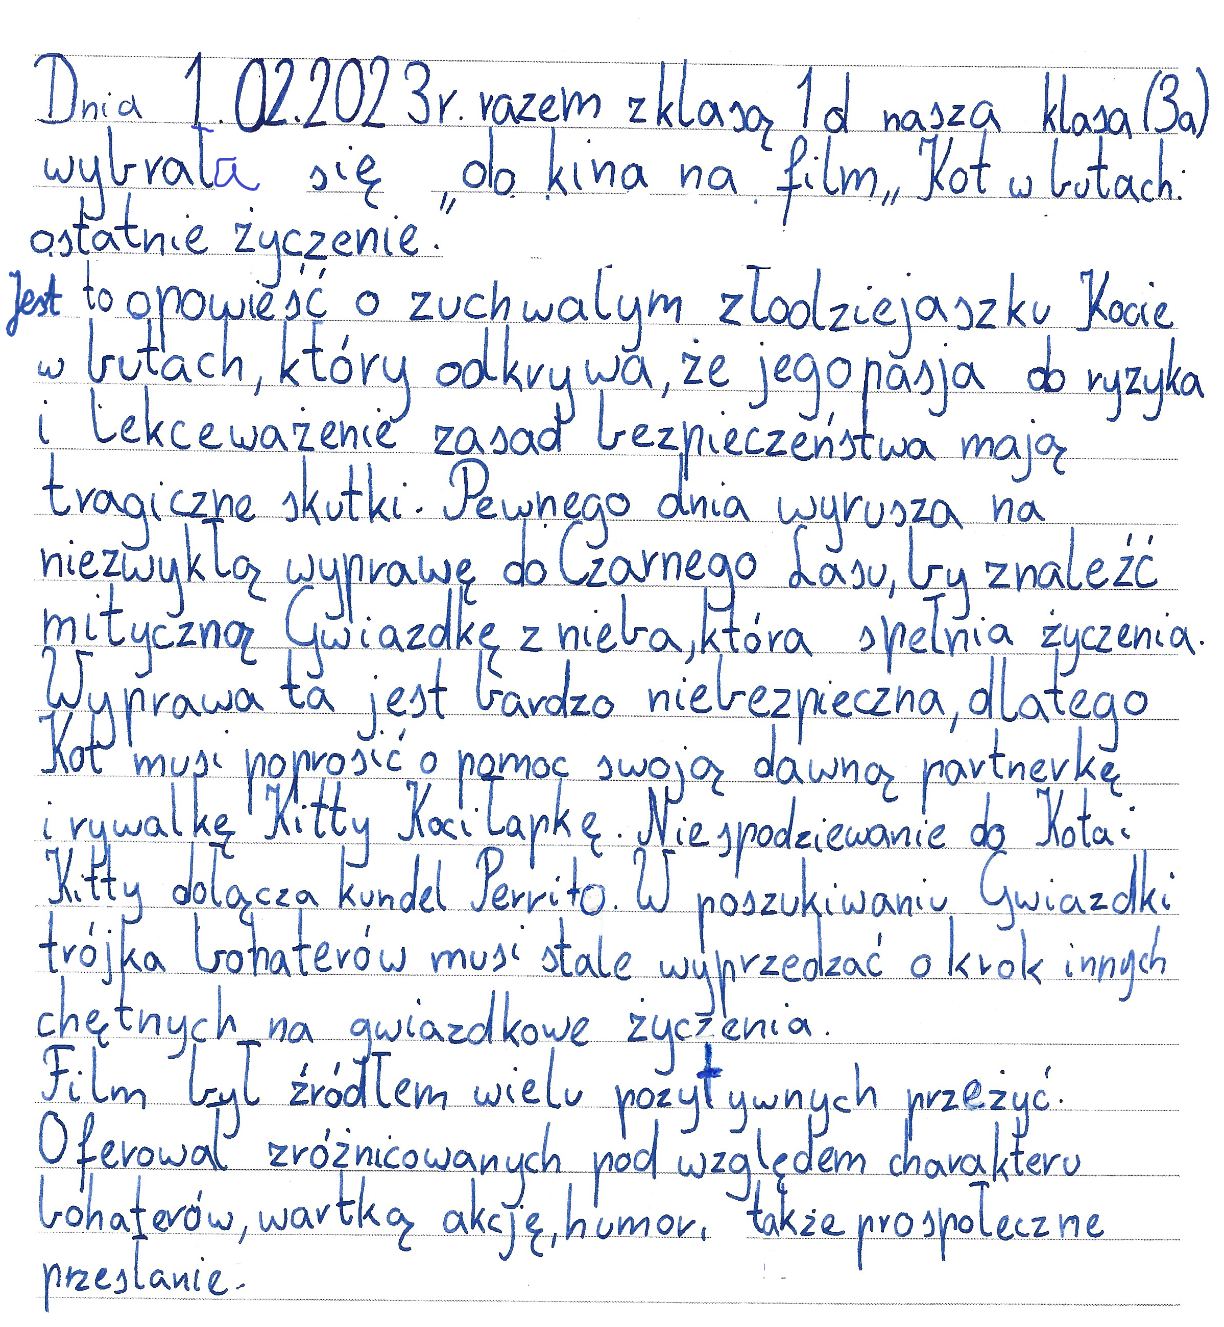 Dnia 1.02.2023r. razem z klasą 1d nasza klasa (3a)
wybrała się „do kina na film „Kot w butach:
ostatnie życzenie.
Jest to opowieść o zuchwałym złodziejaszku Kocie
w butach, który odkrywa, że jego pasja do ryzyka
i lekceważenie zasad bezpieczeństwa mają
tragiczne skutki. Pewnego dnia wyrusza na
niezwykłą wyprawę do Czarnego Lasu, by znaleźć
mityczną Gwiazdkę z nieba, która spełnia życzenia.
Wyprawa ta jest bardzo niebezpieczna, dlatego
Kot musi poprosić o pomoc swoją dawną partnerkę
i rywalkę Kitty Kociłapkę. Niespodziewanie do Kota i
Kitty dołącza kundel Perrito. W poszukiwaniu Gwiazdki
trójka bohaterów musi stale wyprzedzać o krok innych
chętnych na gwiazdkowe życzenia.
Film był źródłem wielu pozytywnych przeżyć.
Oferował zróżnicowanych pod względem charakteru
bohaterów, wartką akcję, humor, także prospołeczne
przesłanie.